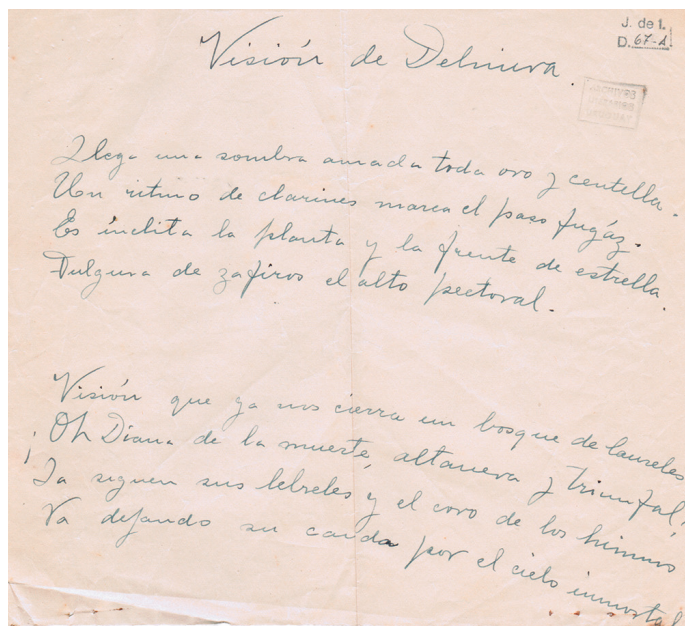 J. de I.
D. 67-A
Visión de Delmira.
ARCHIVOS
LITERARIOS
Llega una sombra amada toda oro y centella.
Un ritmo de clarines marca el paso fugáz.
Es ínclita la planta y la frente de estrella.
Fulgura de zafiros el alto pectoral.
Visión que ya nos cierra un bosque de laureles
¡Oh Diana de la muerte, altanera y triunfal!
La siguen sus lebreles y el coro de los himnos
Va dejando su cauda por el cielo inmortal